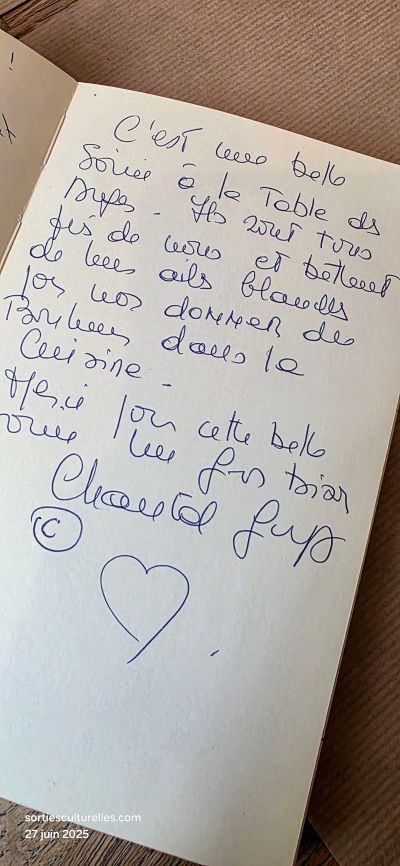 C'est une belle
Soirée à la Table des
Anges. Ils sont tous
de nous et battent
de ailes blanches
pour nous donner du
Bonheur dans la
Cuisine.
Merci pour cette belle
soirée un gros bisou
Chantal
C
sortiesculturelles.com
27 juin 2025